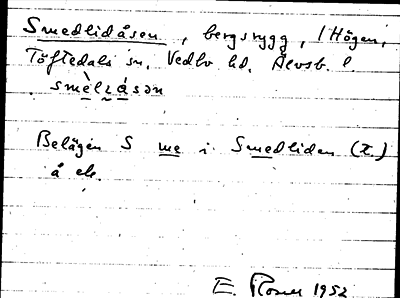 Smedlidåsen, bergsrygg, i Högen,
Töftedals sn. Vedbo hd. Älvsb. l.
smèlɩásən
Belägen S me i Smedliden (T.)
å ek.
E. Rosell 1952